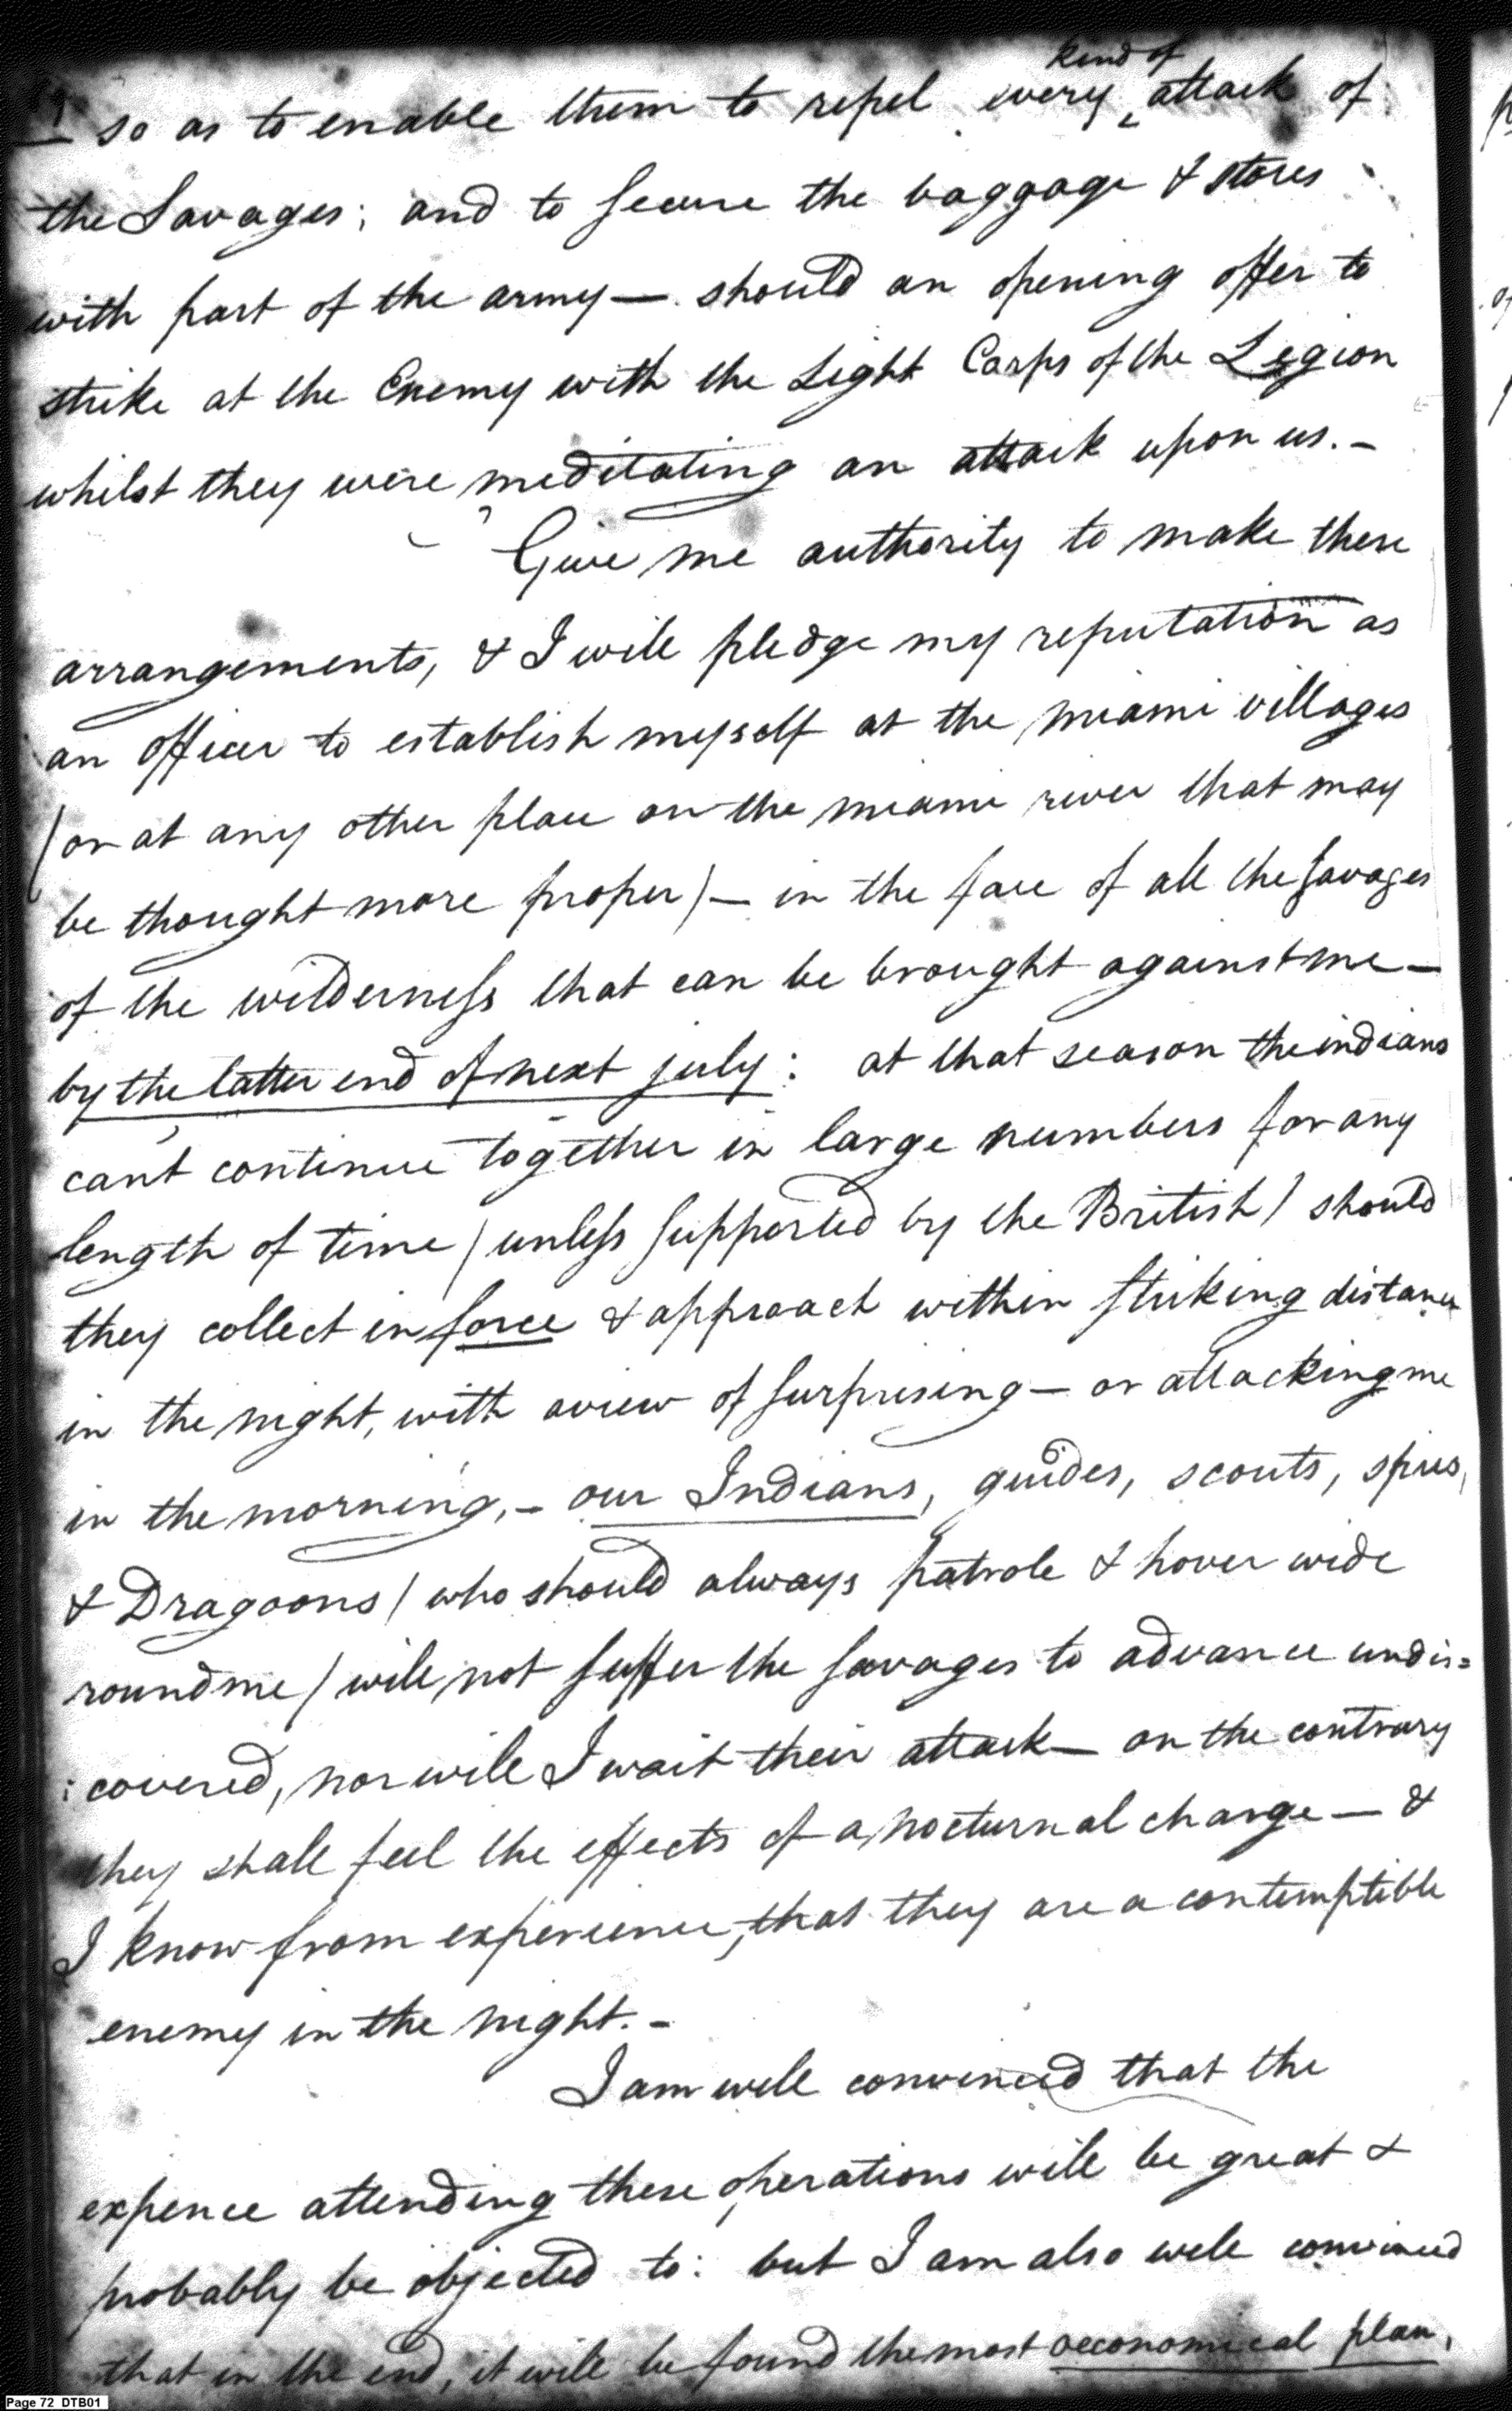 so as to enable them to repel every kind of attack of
the Savages; and to secure the baggage & stores
with part of the army — should an opening offer to
strike at the Enemy with the Light Corps of the Legion
whilst they were meditating an attack upon us. –
Give me authority to make these
arrangements, & I will pledge my reputation as
an officer to establish myself at the miami villages
(or at any other place on the miami river that may
be thought more proper) — in the face of all the savages
of the wilderness that can be brought against me —
by the latter end of next july: at that season the indians
can't continue together in large numbers for any
length of time (unless supported by the British) should
they collect in force & approach within striking distance
in the night, with a view of surprising — or attacking me
in the morning, – our Indians, guides, scouts, spies,
& Dragoons (who should always patrole & hover wide
round me) will not suffer the savages to advance undis=
:covered, nor will I wait their attack — on the contrary
they shall feel the effects of a nocturnal charge — &
I know from experience, that they are a contemptible
enemy in the night. –
I am well convinced that the
expence attending these operations will be great &
probably be objected to: but I am also well convinced
that in the end, it will be found the most oeconomical plan,
Page 72 DTB01